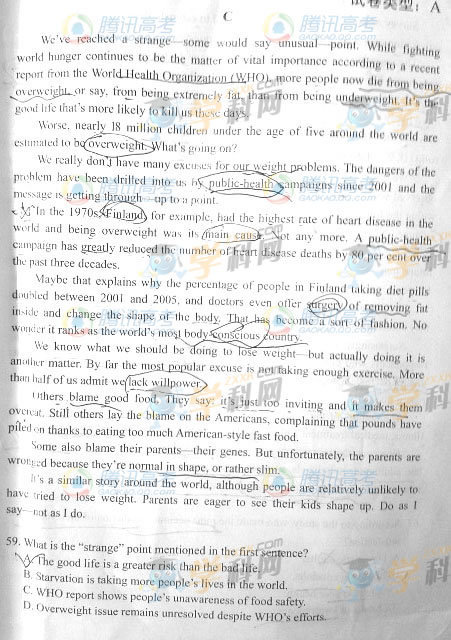 试卷类型：A
腾讯高考
腾讯高考
C
We've reached a strange—some would say unusual—point. While fighting
world hunger continues to be the matter of vital importance according to a recent
report from the World Health Organization (WHO), more people now die from being
overweight, or say, from being extremely fat, than from being underweight. It's the
good life that's more likely to kill us these days.
Worse, nearly 18 million children under the age of five around the world are
estimated to be overweight. What's going on?
We really don't have many excuses for our weight problems. The dangers of the
problem have been drilled into us by public-health campaigns since 2001 and the
message is getting through—up to a point.
In the 1970s, Finland, for example, had the highest rate of heart disease in the
world and being overweight was its main cause. Not any more. A public-health
campaign has greatly reduced the number of heart disease deaths by 80 per cent over
the past three decades.
Maybe that explains why the percentage of people in Finland taking diet pills
doubled between 2001 and 2005, and doctors even offer surgery of removing fat
inside and change the shape of the body. That has become a sort of fashion. No
wonder it ranks as the world's most body-conscious country.
We know what we should be doing to lose weight—but actually doing it is
another matter. By far the most popular excuse is not taking enough exercise. More
than half of us admit we lack willpower.
Others blame good food. They say: it's just too inviting and it makes them
overeat. Still others lay the blame on the Americans, complaining that pounds have
piled on thanks to eating too much American-style fast food.
Some also blame their parents—their genes. But unfortunately, the parents are
wronged because they're normal in shape, or rather slim.
It's a similar story around the world, although people are relatively unlikely to
have tried to lose weight. Parents are eager to see their kids shape up. Do as I
say—not as I do.
59. What is the "strange" point mentioned in the first sentence?
A. The good life is a greater risk than the bad life.
B. Starvation is taking more people's lives in the world.
C. WHO report shows people's unawareness of food safety.
D. Overweight issue remains unresolved despite WHO's efforts.